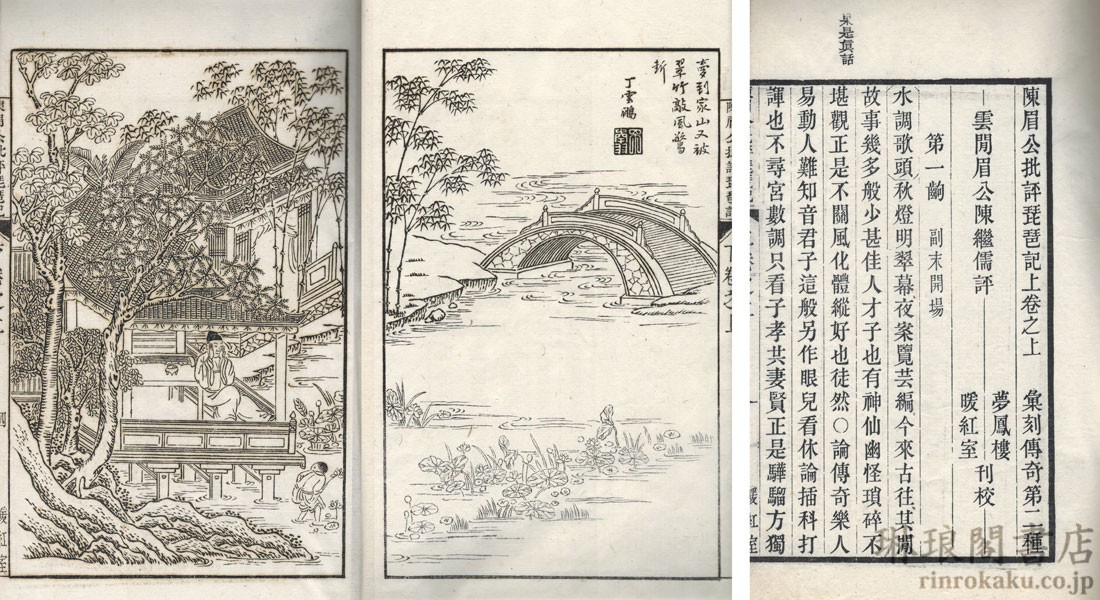 果是眞話
陳眉公批評琵琶記上卷之上　彙刻傳奇第二種
雲閒眉公陳繼儒評
夢鳳樓
暖紅室
刊校
第一齣　副末開場
水調歌頭秋燈明翠幕夜案覽芸編今來古往其閒
故事幾多般少甚佳人才子也有神仙幽怪瑣碎不
堪觀正是不關風化體縱好也徒然〇論傳奇樂人
易動人難知音君子這般另作眼兒看休論插科打
諢也不尋宮數調只看子孝共妻賢正是驊騮方獨
夢到家山又被
翠竹敲風驚
断
丁雲鵬
琳琅閣書店
rinrokaku.co.jp